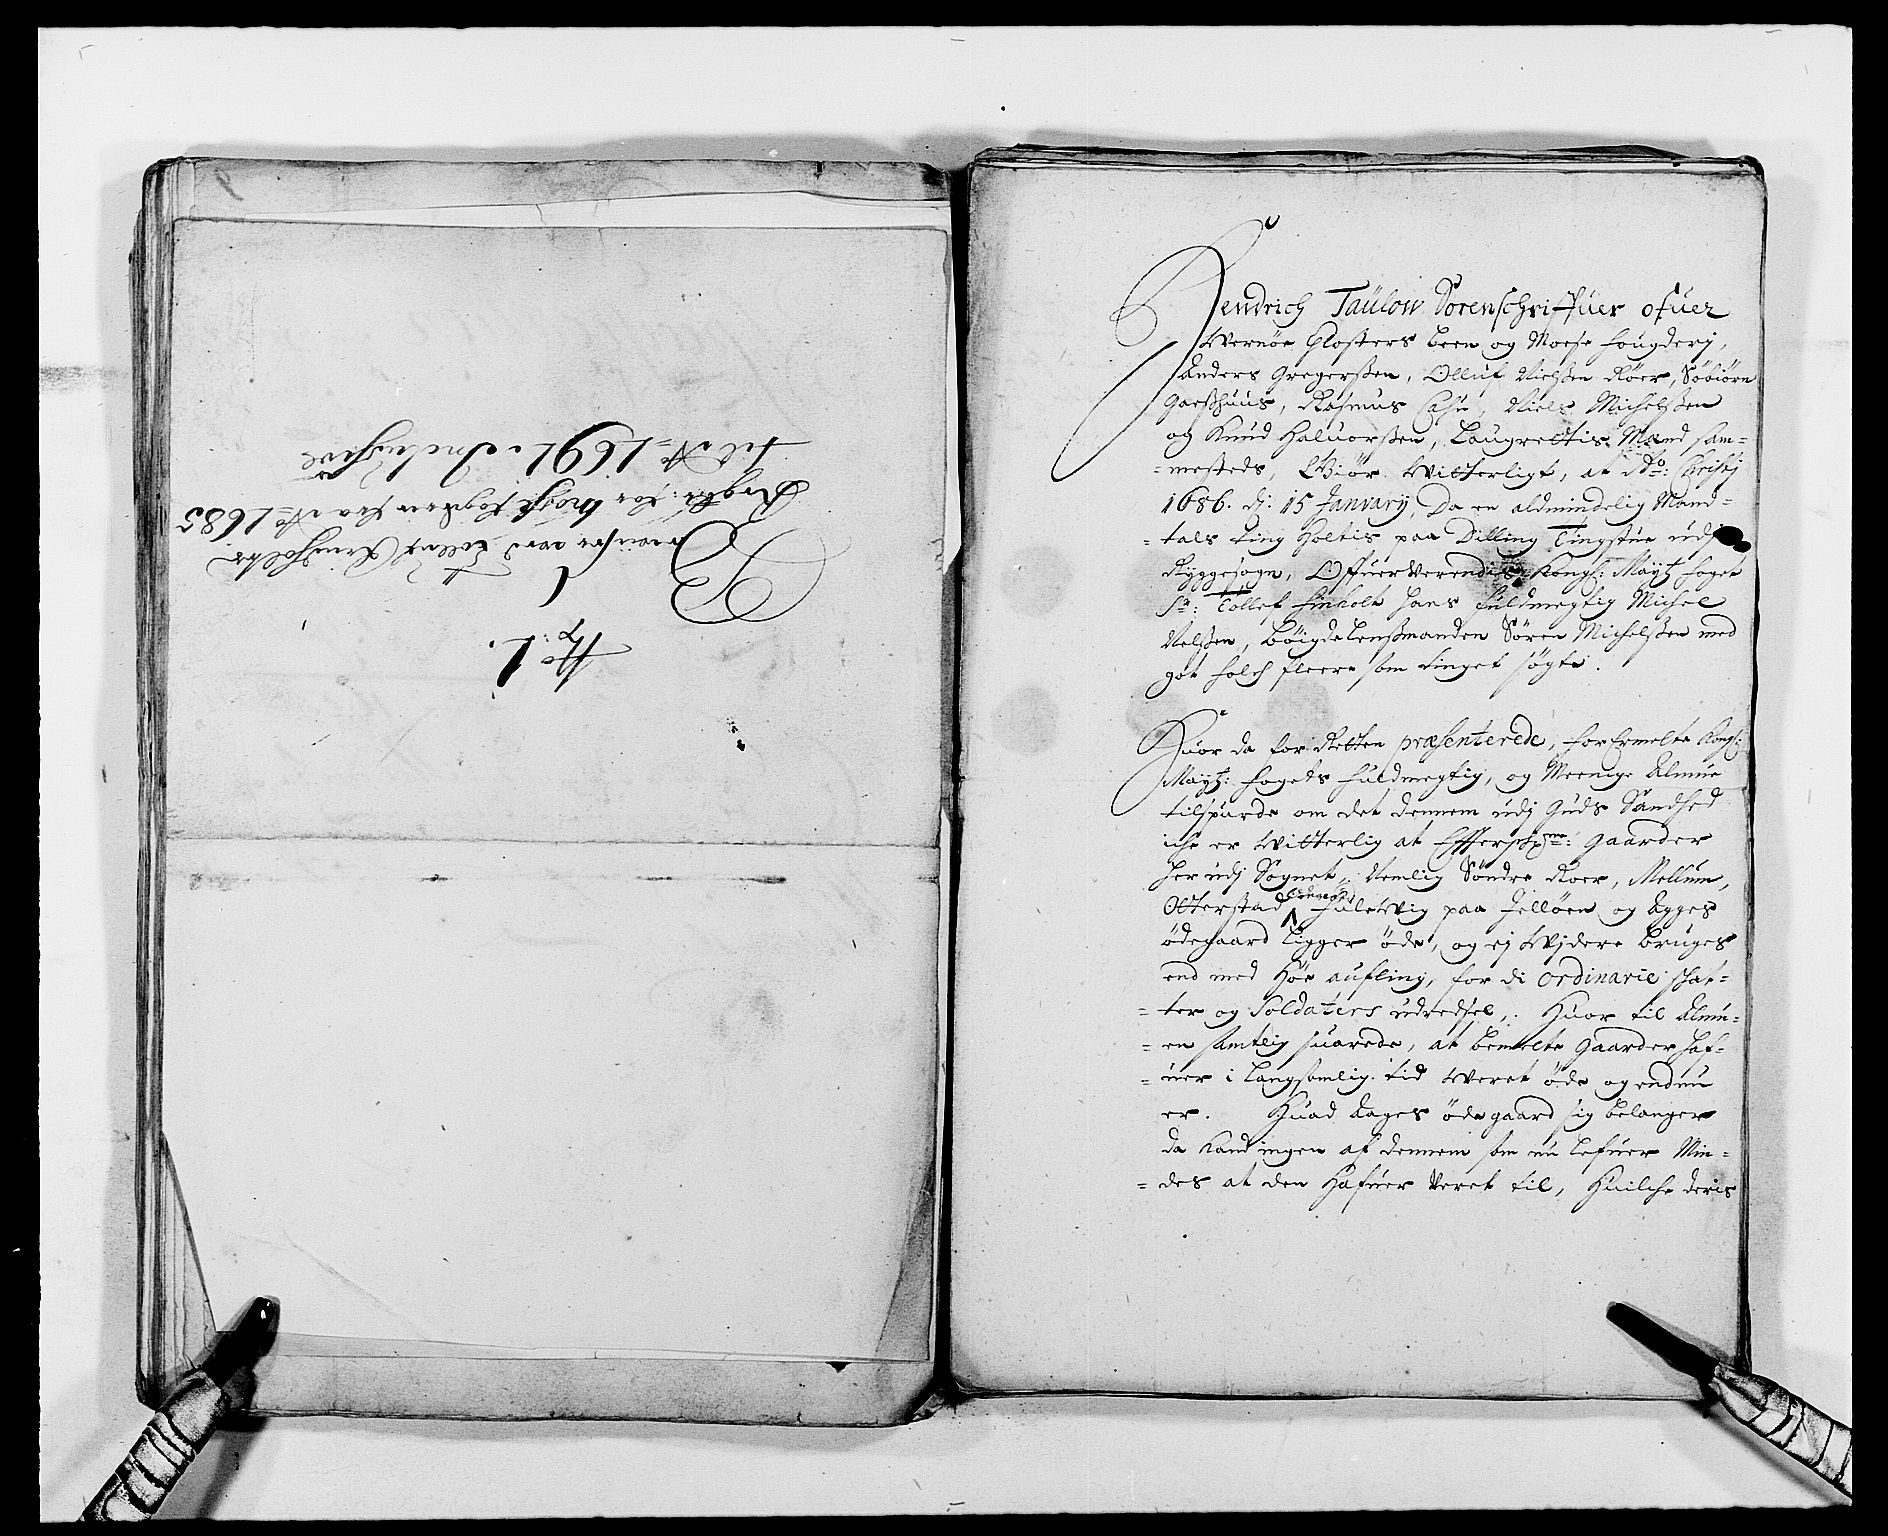 No 1.
Beviser ved Tollef
Regtr: for Moss fogderi fra Ao 1685
til Ao 1691. Inclusive
Hendrich Taulow Sorenschriffuer ofuer
Wernøe Closters Leen og Mosse fougderj,
Anders Gregerssen, Olluf Nielssen Røer, Søbiørn
Gaesshuus, Rasmus, Niels Michelssen
og Knud Haluorssen, Laugrettis Mend sam-
=mesteds, Giør Witterligt, at Ao: Christj
1686. dj: 15 January, Da en aldmindelig Mand-
=tals ting Holtis paa Dilling Tingstue udj
Ryggesogn, Offuerverendis Kongl: Maytz foget
Sr: Tollef Finholt hans fuldmegtig Michel
Nelssen, bøigdelenssmanden Søren Michelssen med
got folch fleere som tinget søgte.
Huor da for Retten præsenterede, forermelte Kongl:
Maytz: fogets fuldmegtig, og Meenige Almue
tilspurde om det dennem udj Guds Sandhed
iche er Witterlig at Effterschne: gaarder
her udj Sognet, Nemlig Søndre Roer, Mellum,
Otterstad Fulewig paa Jelløen og Agges
ødegaard Ligger øde, og ej Widere bruges
end med Høe aufling, for di ordinarie schat-
=ter og Soldaters udredsel, Huor til Almu-
=en samtlig suarede, at bemelte gaarder haf-
=uer i langsomlig tid weret øde og endnu
er. Huad Aages ødegaard sig belanger
da kand ingen af dennem som nu lefuer Min-
=des at den Hafuer veret til, Huilche deris